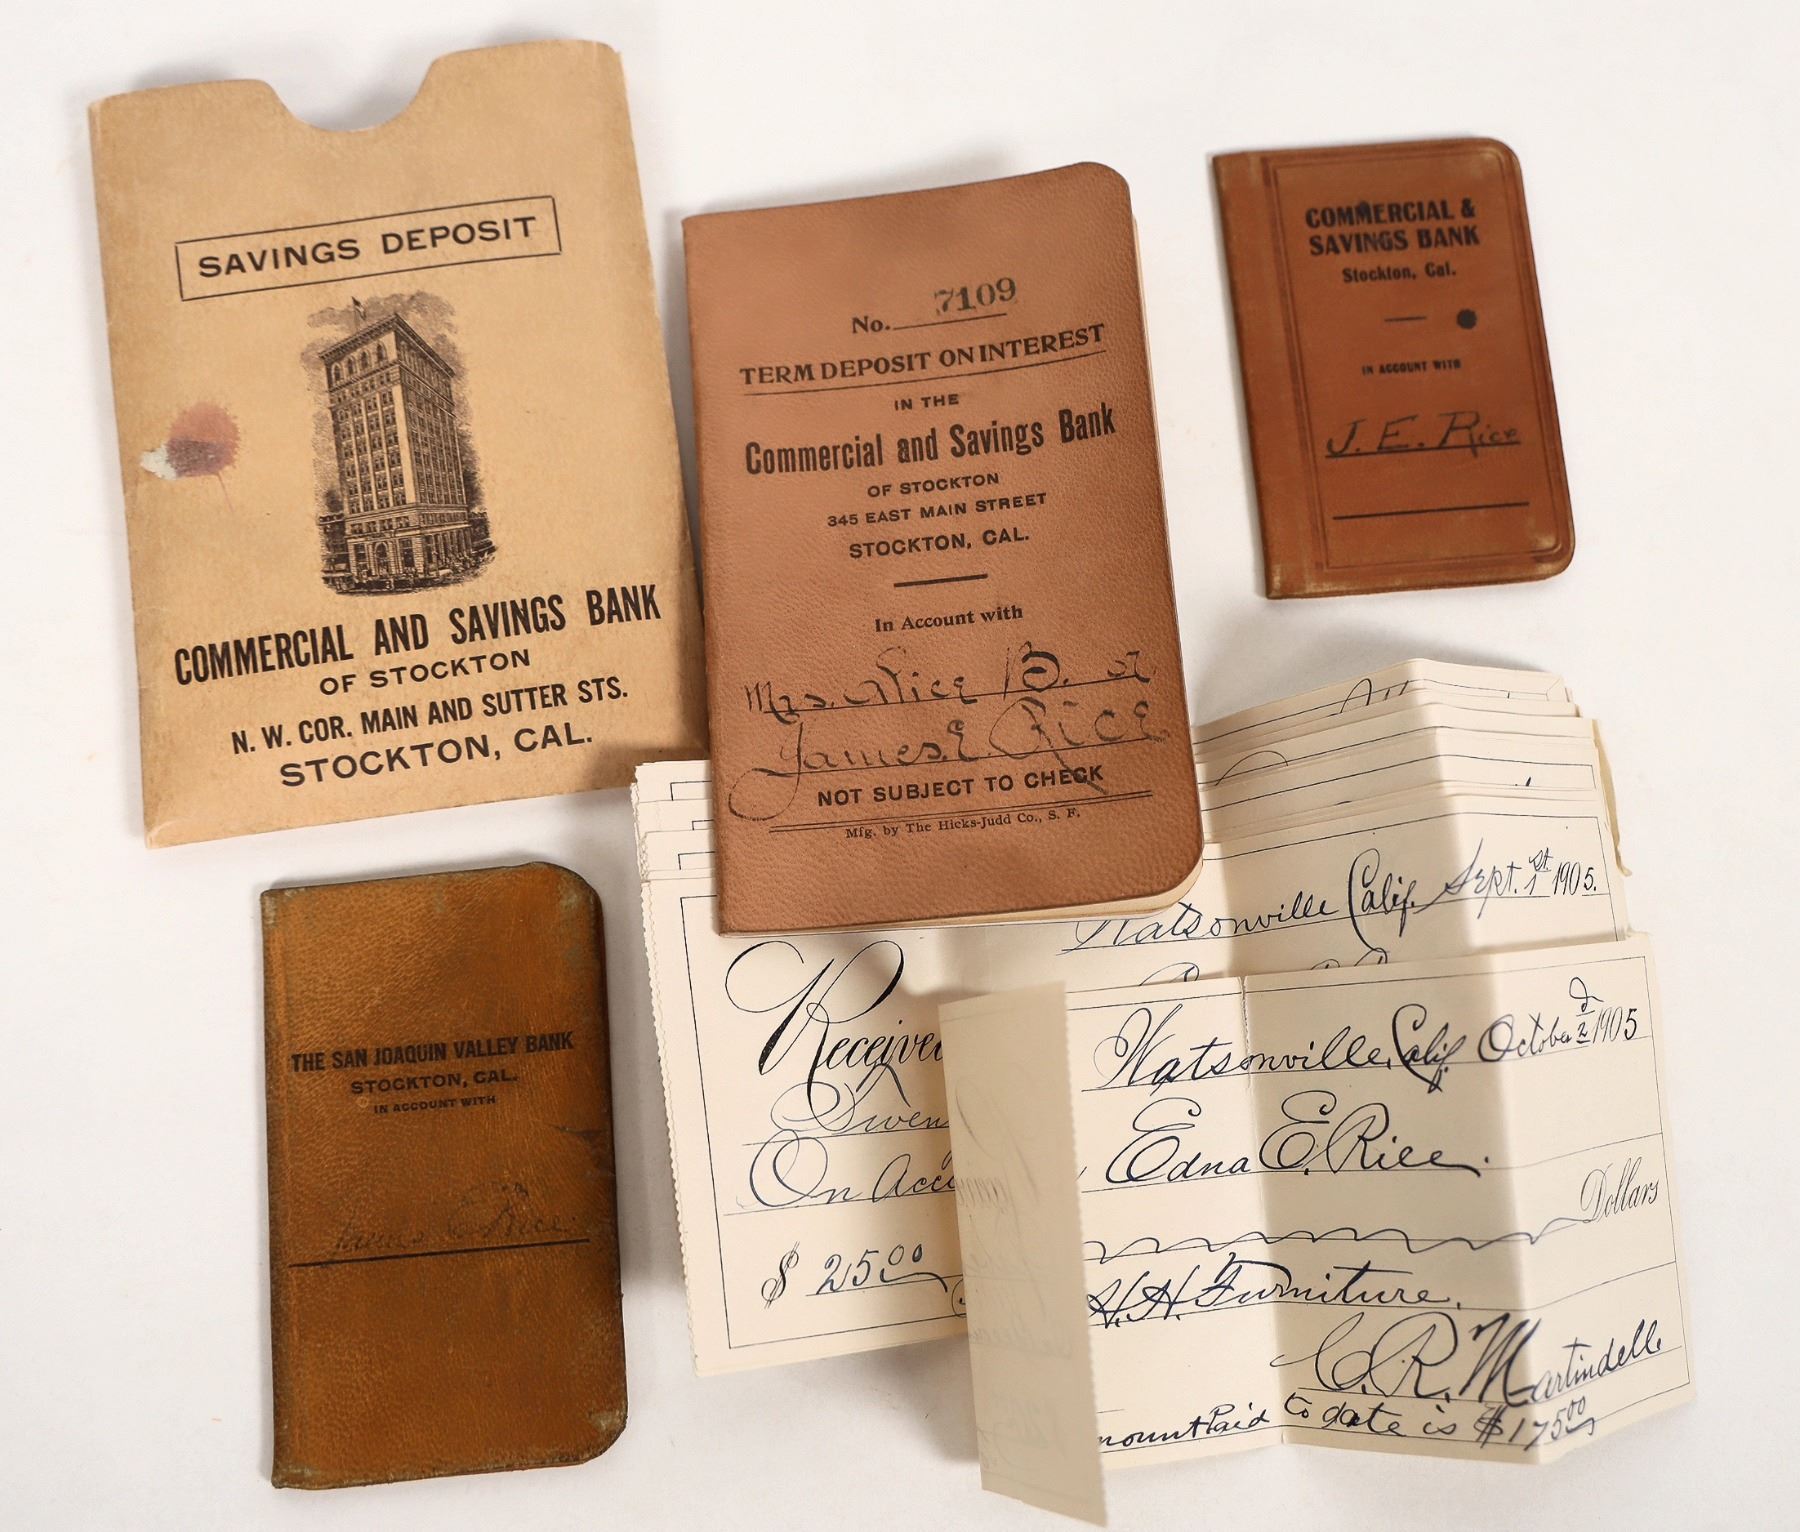 SAVINGS DEPOSIT
COMMERCIAL AND SAVINGS BANK
OF STOCKTON
N. W. COR. MAIN AND SUTTER STS.
STOCKTON, CAL.
No. 7109
TERM DEPOSIT ON INTEREST
IN THE
Commercial and Savings Bank
OF STOCKTON
345 EAST MAIN STREET
STOCKTON, CAL.
In Account with
Mrs. Alice B. or
James E. Rice
NOT SUBJECT TO CHECK
Mfg. by The Hicks-Judd Co., S. F.
COMMERCIAL &
SAVINGS BANK
Stockton, Cal.
IN ACCOUNT WITH
J. E. Rice
THE SAN JOAQUIN VALLEY BANK
STOCKTON, CAL.
IN ACCOUNT WITH
James E Rice
Watsonville Calif. Sept. 1st 1905.
Received
On Acco
$ 25.00
Watsonville, Calif. October 2 1905
Edna E. Rice.
Dollars
H.H. Furniture.
C. R. Martindell
mount Paid to date is $175.00